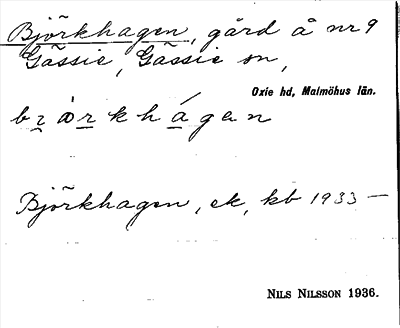 Björkhagen, gård å nr 9
Gässie, Gässie sn,
Oxie hd, Malmöhus län.
Björkhagen, ek, kb 1933 —
NILS NILSSON 1936.